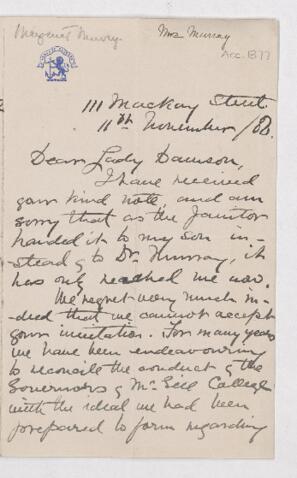 Margaret Murray.
Mrs Murray
Acc. 1877
111 Mackay Street
11th November / 88.
Dear Lady Dawson,
I have received
your kind note, and am
sorry that as the Janitor
handed it to my son in-
stead of to Dr. Murray, it
has only reached me now.
We regret very much in-
deed that we cannot accept
your invitation. For many years
we have been endeavouring
to reconcile the conduct of the
Governors of McGill College
with the ideal we had been
prepared to form regarding